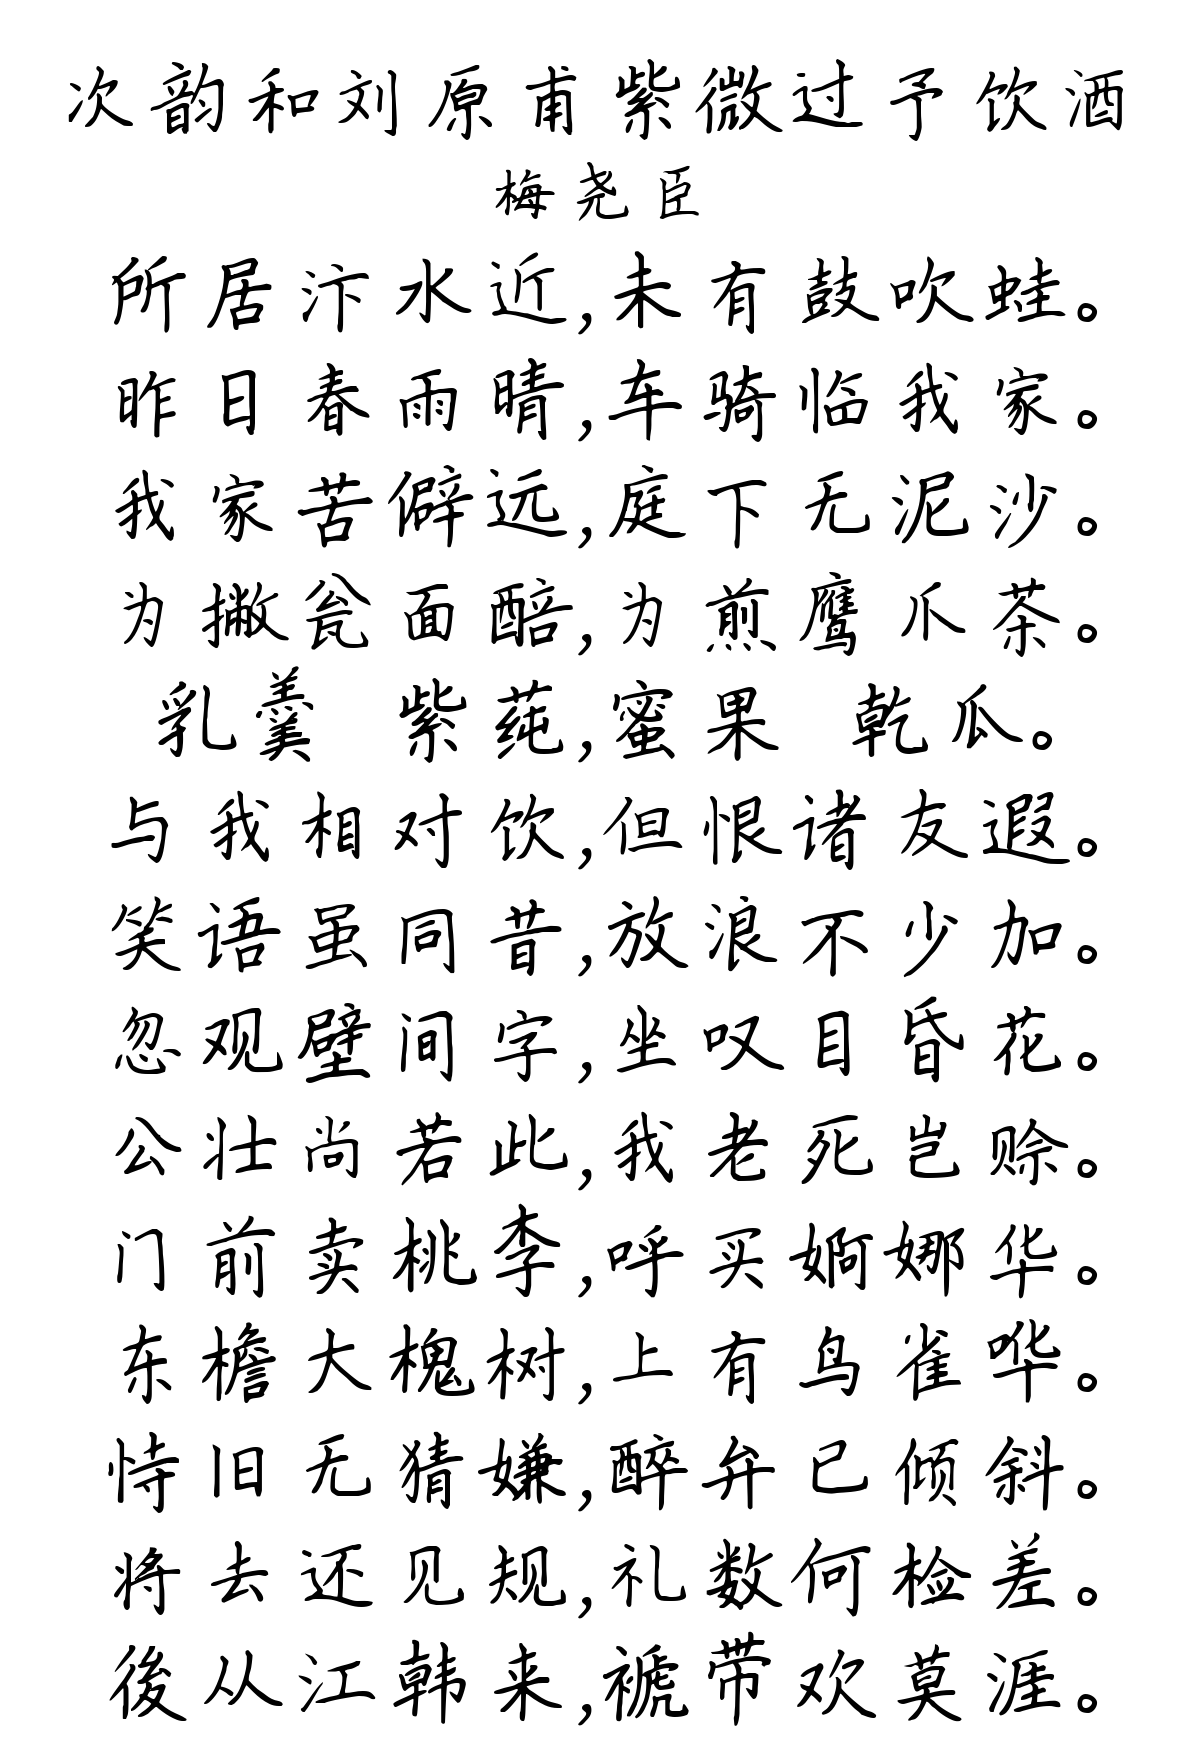 次韵和刘原甫紫微过予饮酒
梅尧臣
所居汴水近,未有鼓吹蛙。
昨日春雨晴,车骑临我家。
我家苦僻远,庭下无泥沙。
为撇瓮面醅,为煎鹰爪茶。
乳羹 紫莼,蜜果 乾瓜。
与我相对饮,但恨诸友遐。
笑语虽同昔,放浪不少加。
忽观壁间字,坐叹目昏花。
公壮尚若此,我老死岂赊。
门前卖桃李,呼买婀娜华。
东檐大槐树,上有鸟雀哗。
恃旧无猜嫌,醉弁已倾斜。
将去还见规,礼数何检差。
後从江韩来,褫带欢莫涯。